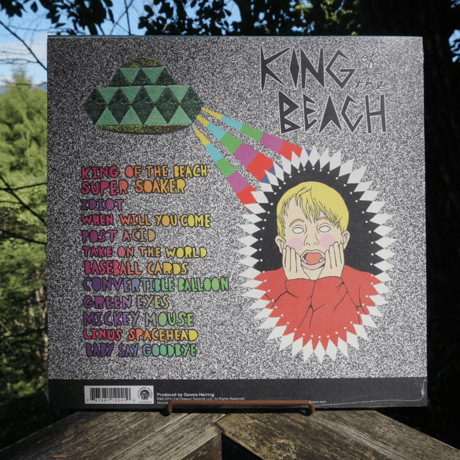 KING
OF
the
BEACH
KING OF THE BEACH
SUPER SOAKER
IDIOT
WHEN WILL YOU COME
POST ACID
TAKE ON THE WORLD
BASEBALL CARDS
CONVERTIBLE BALLOON
GREEN EYES
MICKEY MOUSE
LINUS SPACEHEAD
BABY SAY GOODBYE
Produced by Dennis Herring